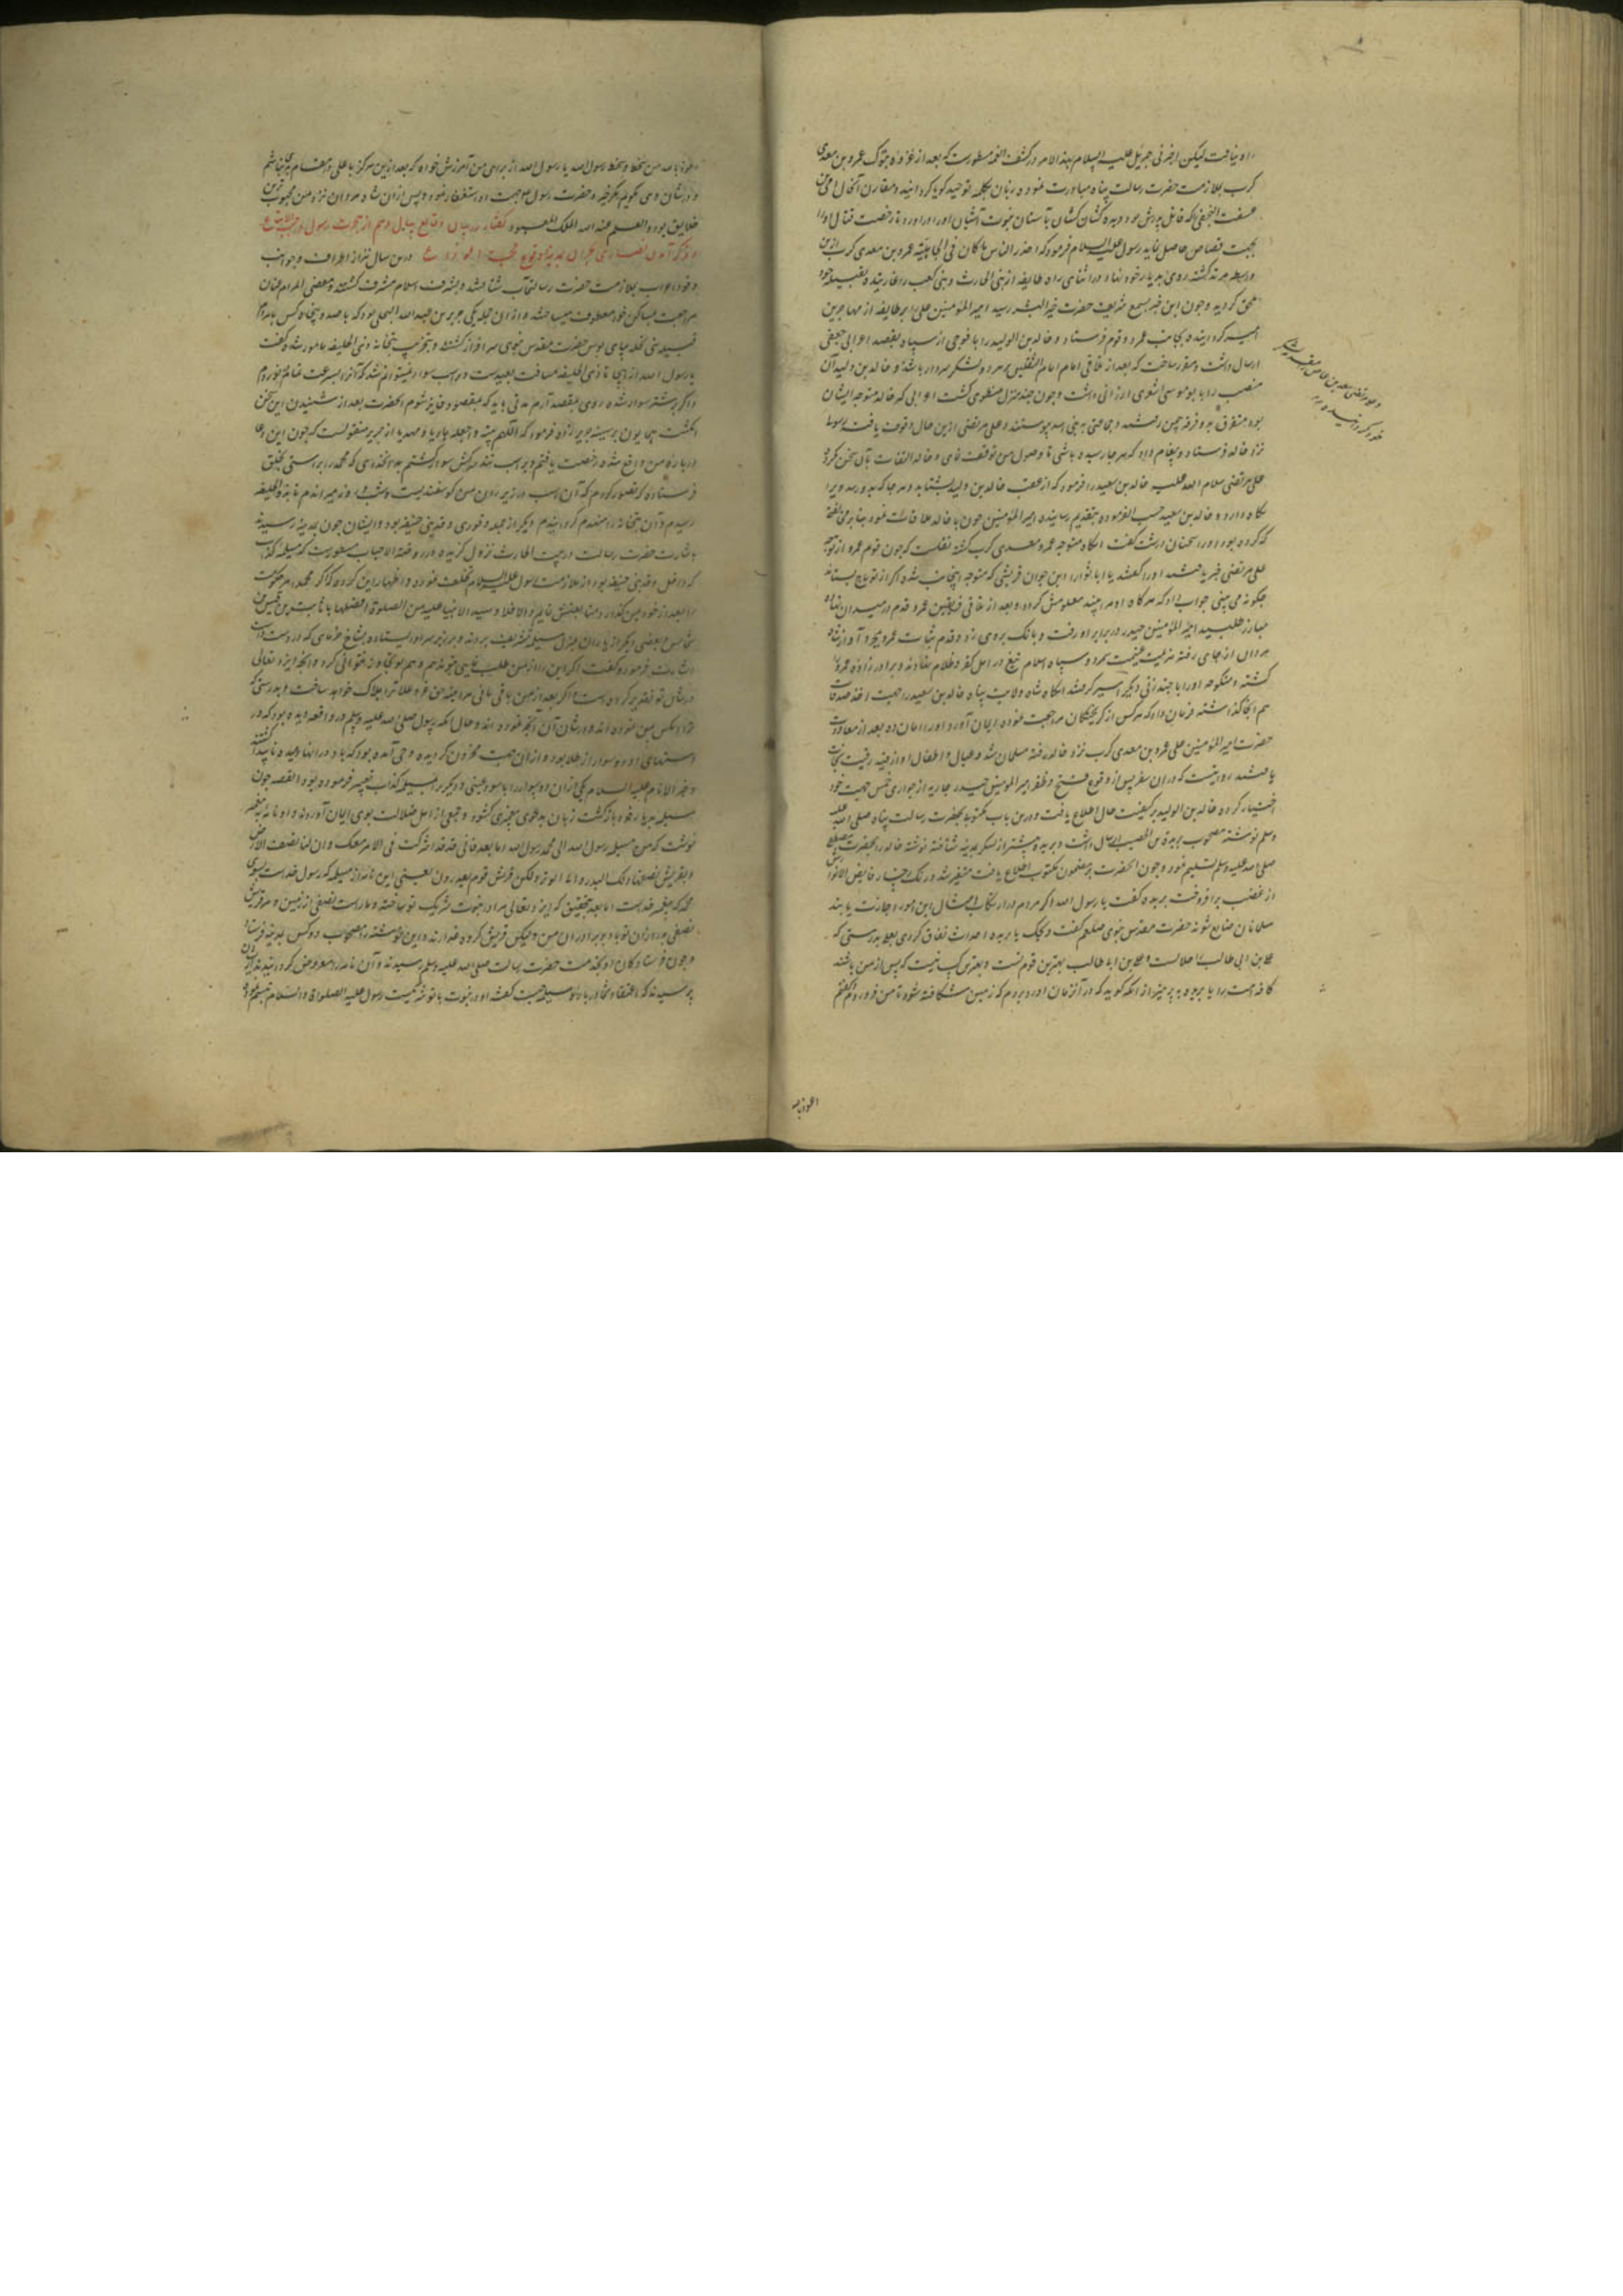 راه نیافت لیکن اخبرنی جبرئیل علیه السلام بهذا الامر در کشف الغمه مسطورست که بعد از غزوه تبوک عمرو بن معدی
کرب بملازمت حضرت رسالت پناه مبادرت نموده زبان بکلمه توحید گویا گردانید و مقارن آنحال
که قاتل پدرش بود دیده کشان کشان بآستان نبوت آشیان آورد و رخصت قتال او را
بجهت قصاص حاصل نماید رسول علیه السلام فرمود که اهدر الناس ما کان فی الجاهلیة عمرو بن معدی کرب ازین
واسطه مرتد گشته روی بدیار خود نهاد و در اثنای راه طایفه از بنی الحارث و بنی کعب را غارتیده بقبیله خود
ملحق گردید و چون این خبر بسمع شریف حضرت خیر البشر رسید امیر المؤمنین علی را بر طایفه از مهاجرین
امیر گردانیده بجانب عمرو و قوم او فرستاد و خالد بن الولید را با فوجی از سپاه بقصد اعرابی جعفی
ارسال داشت و مقرر ساخت که بعد از تلاقی امام امام الثقلین بر هر دو لشکر سردار باشد و خالد بن ولید آن
منصب را بابو موسی اشعری ارزانی داشت و چون چند منزل منطوی گشت اعرابی که خالد متوجه ایشان
بود متفرق بدو فرقه یمن رفتند و جماعتی به بنی زبید پیوستند و علی مرتضی ازین حال وقوف یافت رسول
نزد خالد فرستاد و پیغام داد که هر جا رسیده باشی تا وصول من توقف نمای و خالد التفات بآن سخن نکرد
علی مرتضی سلام الله علیه خالد بن سعید را فرمود که از عقب خالد بن ولید بشتابد و هر جا که بدو رسد ویرا
نگاه دارد و خالد بن سعید حسب الفرموده بتقدیم رسانیده امیر المؤمنین چون با خالد ملاقات نمود بنا بر مخالفتی
که کرده بود او را سخنان درشت گفت آنگاه متوجه عمرو معدی کرب گشته نقلست که چون قوم عمرو از توجه
علی مرتضی خبر یافتند او را گفتند یا ابا ثور این جوان قریشی که متوجه اینجانب شده اگر از تو باج بستاند
چگونه می بینی جواب داد که هرگاه او مرا بیند معلومش گردد و بعد از تلاقی فریقین عمرو قدم در میدان نهاده
مبارز طلبید امیر المؤمنین حیدر در برابر او رفت و بانک بروی زد و قدم ثبات عمرو بجز آواز شاه
مردان از جای رفته هزیمت غنیمت شمرد و سپاه اسلام تیغ در اهل کفر و ظلام نهادند و برادر زاده عمرو
کشته و منکوحه او را با چند زنی دیگر اسیر گرفتند آنگاه شاه ولایت پناه خالد بن سعید را جهت اخذ صدقات
هم آنجا گذاشته فرمان داد که هر کس از گریختگان مراجعت نموده ایمان آورد او را امان ده بعد از معاودت
حضرت امیر المؤمنین علی عمرو بن معدی کرب نزد خالد رفته مسلمان شد و عیال و اطفال او از قید رقیت نجات
یافتند روایتست که در آن سفر پس از وقوع فتح و ظفر امیر المؤمنین حیدر جاریه از جواری خمس جهت خود
اختیار کرده خالد بن الولید بر کیفیت حال اطلاع یافت و درین باب مکتوبی بحضرت رسالت پناه صلی الله علیه
وسلم نوشته مصحوب بریده بن الحصیب ارسال داشت و بریده پیشتر از لشکر بمدینه شتافته نوشته خالد را بحضرت مصطفی
صلی الله علیه وسلم تسلیم نمود و چون آنحضرت بر مضمون مکتوب اطلاع یافت متغیر شد و رنگ رخسار فایض الانوارش
از غضب برافروخت بریده گفت یا رسول الله اگر مردم در ارتکاب امثال این امور اجازت یابند
مسلمانان ضایع شوند حضرت مقدس نبوی صلعم گفت ویحک یا بریده احداث نفاق کردی بدرستی که
علی بن ابی طالب را حلالست و علی بن ابی طالب بهترین قوم تست و بهترین کسیست که پس از من باشند
کافه امت را یا بریده بپرهیز از آنکه گوید که در آن زمان آرزو بردم که زمین شکافته شود تا من فرو روم و گفتم
و علی مرتضی سعید بن عاص
خود گردانیده
اعوذ بالله
اعوذ بالله من سخط الله و سخط رسول الله یا رسول الله از برای من آمرزش خواه که بعد ازین هرگز با علی در مقام
و در شان وی نگویم مگر خیر و حضرت رسول جهت او استغفار نمود و پس ازان شاه مردان نزد من محبوب ترین
خلایق بود و العلم عند الله الملک المعبود گفتار در بیان وقایع سال دهم از هجرت رسول
و ذکر آمدن نصاری نجران بمدینه و وقوع حجت الوداع درین سال نیز از اطراف و جوانب
وفود اعراب بملازمت حضرت رسالتمآب شتافتند و بشرف اسلام مشرف گشته و مقضی المرام عنان
مراجعت بمساکن خود معطوف میساختند و از آن جمله یکی جریر بن عبد الله البجلی بود که با صد و پنجاه کس با مردم
قبیله بپای بوس حضرت مقدس نبوی سرافراز گشتند و بتخریب بتخانه ذی الخلیفه مامور شده گفت
یا رسول الله از اینجا تا ذی الخلیفه مسافت بعیدست و بر اسب سوار نمیتوانم شد
و اگر بر شتر سوار شده روی بمقصد آرم مدتی باید که بمقصود فایز شوم آنحضرت بعد از شنیدن این سخن
انگشت همایون بر سینه جریر زده فرمود که اللهم ثبته و اجعله هادیا و مهدیا از جریر منقولست که چون این دعا
درباره من واقع شد رخصت یافتم و بر اسب تند سرکش سوار گشتم بدان خدای که محمد را براستی بخلق
فرستاده که تصور کردم که آن اسب در زیر ران من گوسفندیست و شب و روز میراندم تا بذی الخلیفه
رسیدم و آن بتخانه را منهدم گردانیدم دیگر از جمله وفود وفد بنی حنیفه بود و ایشان چون بمدینه رسیدند
باشارت حضرت رسالت در بیت الحارث نزول گزیدند در روضة الاحباب مسطورست که مسیلمه کذاب
که داخل وفد بنی حنیفه بود از ملازمت رسول علیه السلام تخلف نموده و اظهار این کرده که اگر محمد امر حکومت
را بعد از خود بمن گذارد متابعتش نمایم والا فلا و سید الانبیا علیه من الصلوة افضلها با ثابت بن قیس بن
شماس و بعضی دیگر از یاران بمنزل مسیلمه تشریف بردند و بر زبر سر او ایستاده بشاخ خرمای که در دست داشت
اشارت فرمود و گفت اگر این را از من طلب نمایی بتو ندهم و هم بو تجاوز نتوانی کرد و آنچه ایزد تعالی
در شان تو تقدیر کرده است اگر بعد از من باقی مانی هر آینه حق عز و علا ترا هلاک خواهد ساخت و بدرستی که
تو آنکس بمن نموده اند و در شان آن آنچه نموده اند و حال آنکه رسول صلی الله علیه وسلم در واقعه دیده بود که در
دستهای او دو سوار از طلا بود و از آن جهت محزون گردیده وحی آمده بود که باد در آنها دمیده ناپیدا گشتند
و خیر الانام علیه السلام یکی از آن دو سوار را باسود عنسی و دیگر بمسیلمه کذاب تعبیر فرموده بود القصه چون
مسیلمه بدیار خود بازگشت زبان بدعوی پیغمبری گشود و جمعی از اهل ضلالت بوی ایمان آوردند و او نامه به پیغمبر
نوشت که من مسیلمه رسول الله الی محمد رسول الله اما بعد فانی قد اشرکت فی الامر معک و ان لنا نصف الارض
و لقریش نصفها ولکن قریش قوم یعتدون یعنی این نامه از مسیلمه که رسول خداست بسوی
محمد که پیغمبر خداست اما بعد بتحقیق که ایزد تعالی مرا در نبوت شریک تو ساخته و ما راست نصفی از زمین و مر قریش
را نصفی ولیکن قریش گروه غدارند و این نوشته را مصحوب دو کس بمدینه فرستاد
و چون فرستادگان او بخدمت حضرت رسالت صلی الله علیه وسلم رسیدند و آن نامه را معروض گردانیدند
پرسیدند که اعتقاد شما در باره مسیلمه چیست گفتند او در نبوت با تو شریکست رسول علیه الصلواة والسلام تبسم نمود